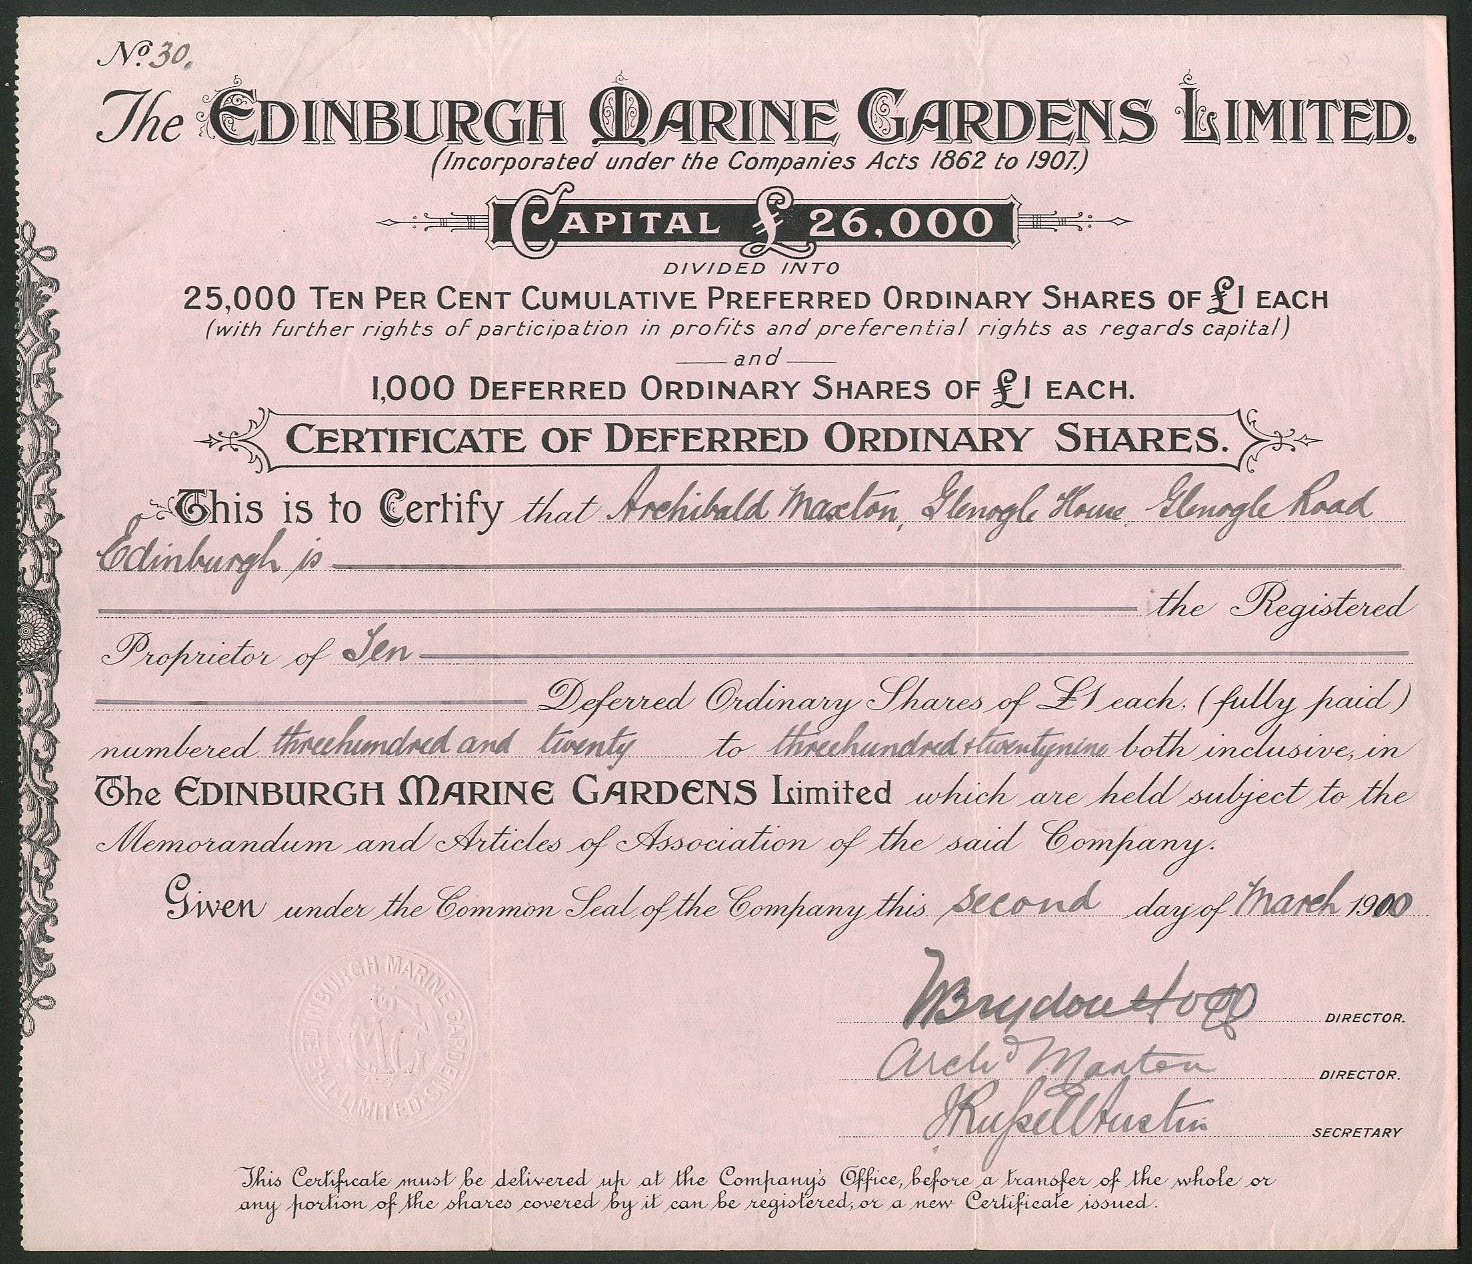 No. 30.
The EDINBURGH MARINE GARDENS LIMITED.
(Incorporated under the Companies Acts 1862 to 1907.)
CAPITAL £26,000
DIVIDED INTO
25,000 TEN PER CENT CUMULATIVE PREFERRED ORDINARY SHARES OF £1 EACH
(with further rights of participation in profits and preferential rights as regards capital)
and
1,000 DEFERRED ORDINARY SHARES OF £1 EACH.
CERTIFICATE OF DEFERRED ORDINARY SHARES.
This is to Certify that Archibald Maxton, Glenogle House, Glenogle Road
Edinburgh is
the Registered
Proprietor of Ten
Deferred Ordinary Shares of £1 each, (fully paid)
numbered threehundred and twenty to threehundred & twentynine both inclusive, in
The EDINBURGH MARINE GARDENS Limited which are held subject to the
Memorandum and Articles of Association of the said Company.
Given under the Common Seal of the Company this second day of March 1910
W Brydon Hogg DIRECTOR.
Archd Maxton DIRECTOR.
J Russell Austin SECRETARY
THE EDINBURGH MARINE GARDENS LIMITED
This Certificate must be delivered up at the Company's Office, before a transfer of the whole or
any portion of the shares covered by it can be registered, or a new Certificate issued.